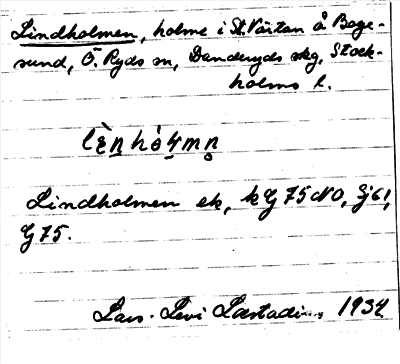 Lindholmen, holme i St. Värtan å Boge-
sund, Ö. Ryds sn, Danderyds skg, Stock-
holms l.
lèn hó4mn
Lindholmen ek, kG 75 NO, Sj 61,
G 75.
Lars-Levi Læstadius 1934